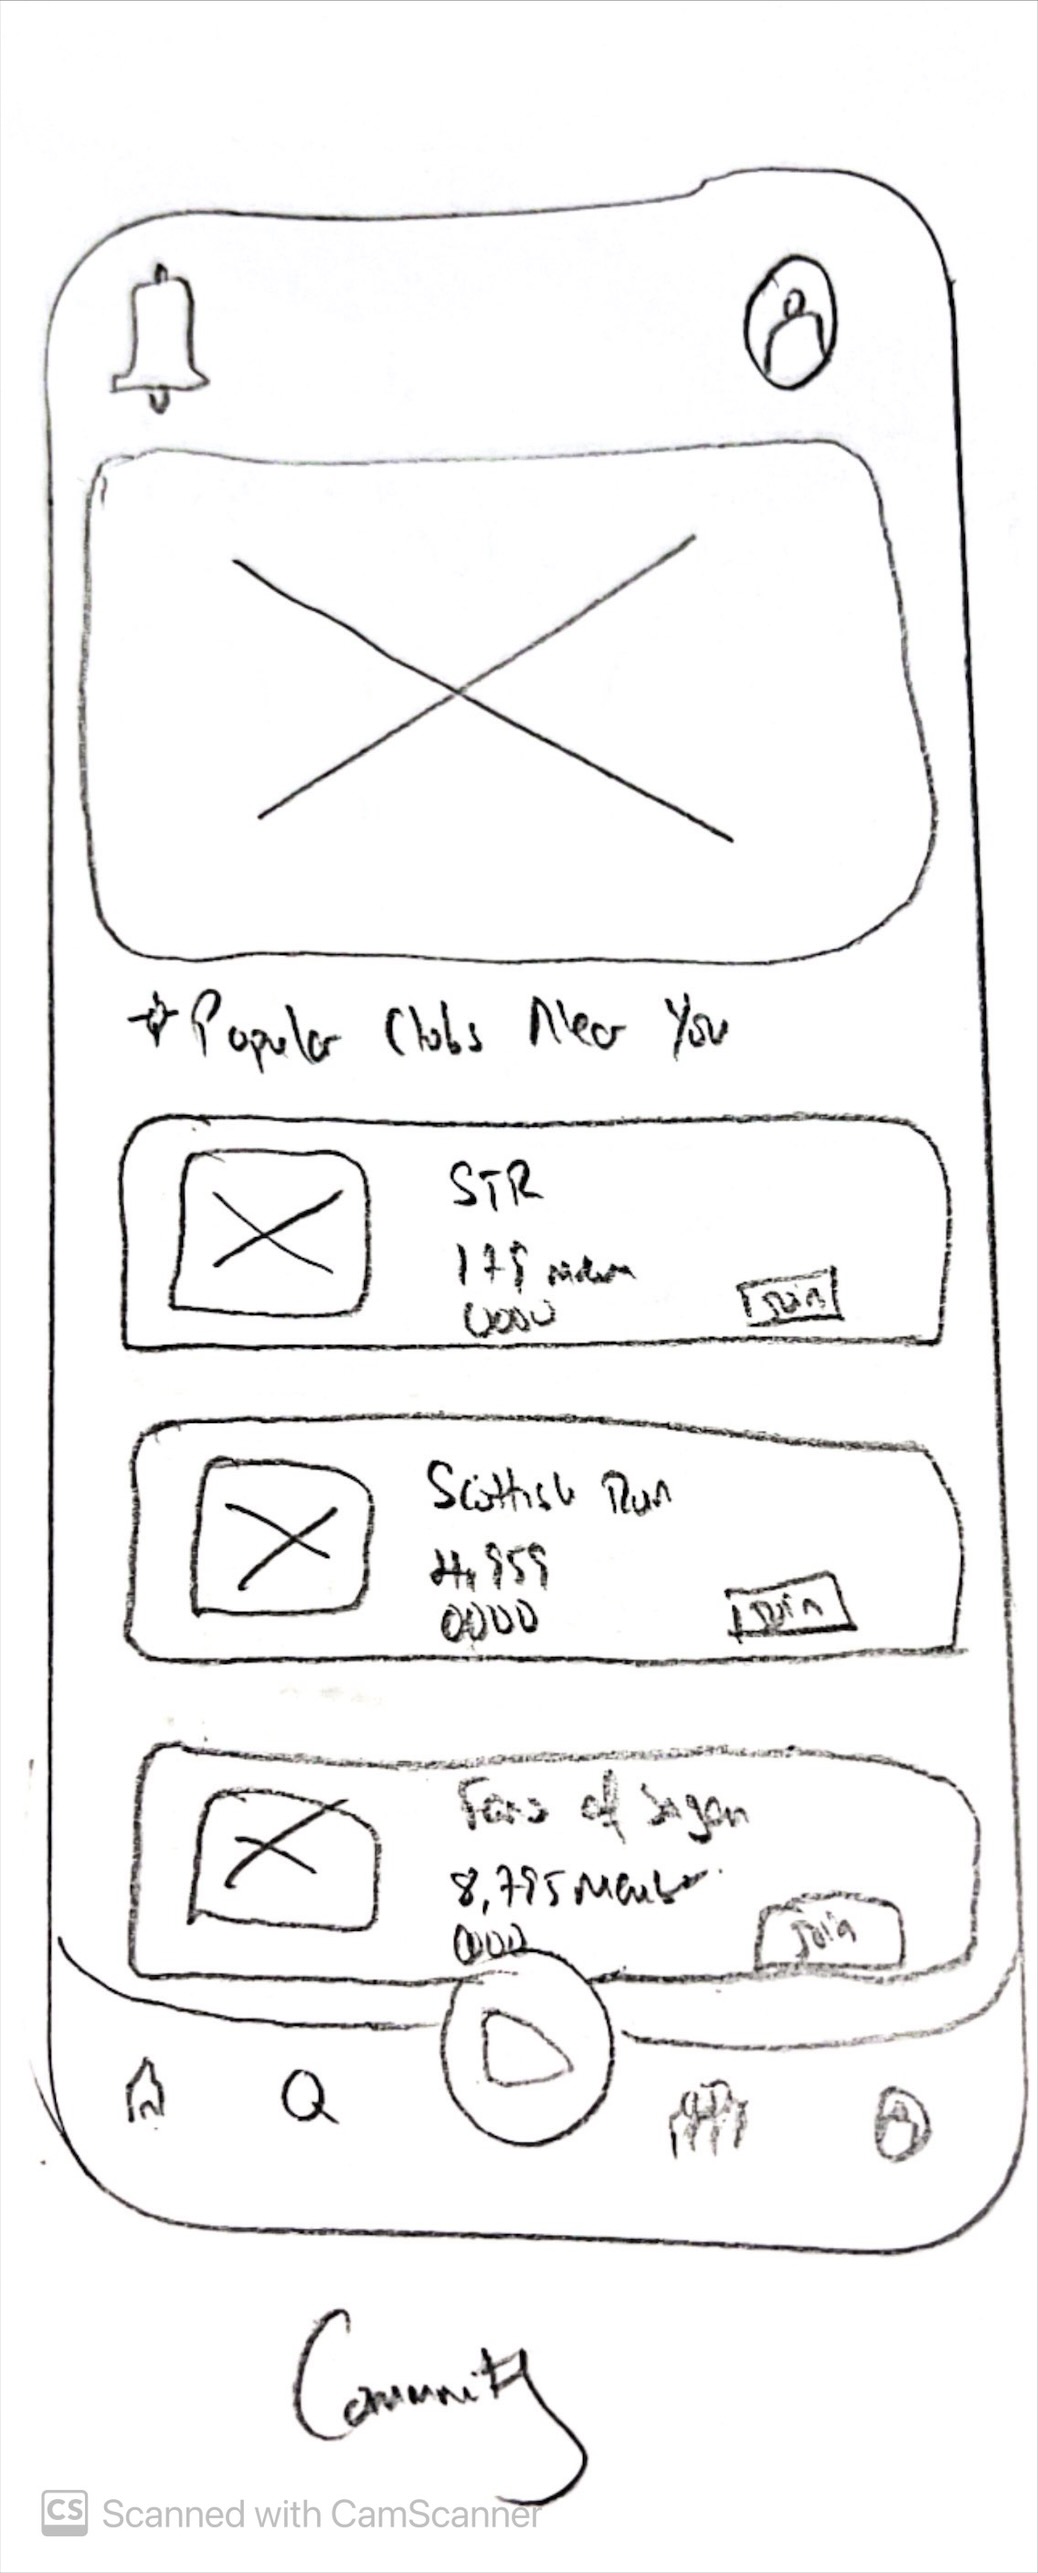 Popular Clubs Near You
STR
Join
Scottish Run
Join
Fans of Sagan
8,795 Member
Join
Community
CS Scanned with CamScanner